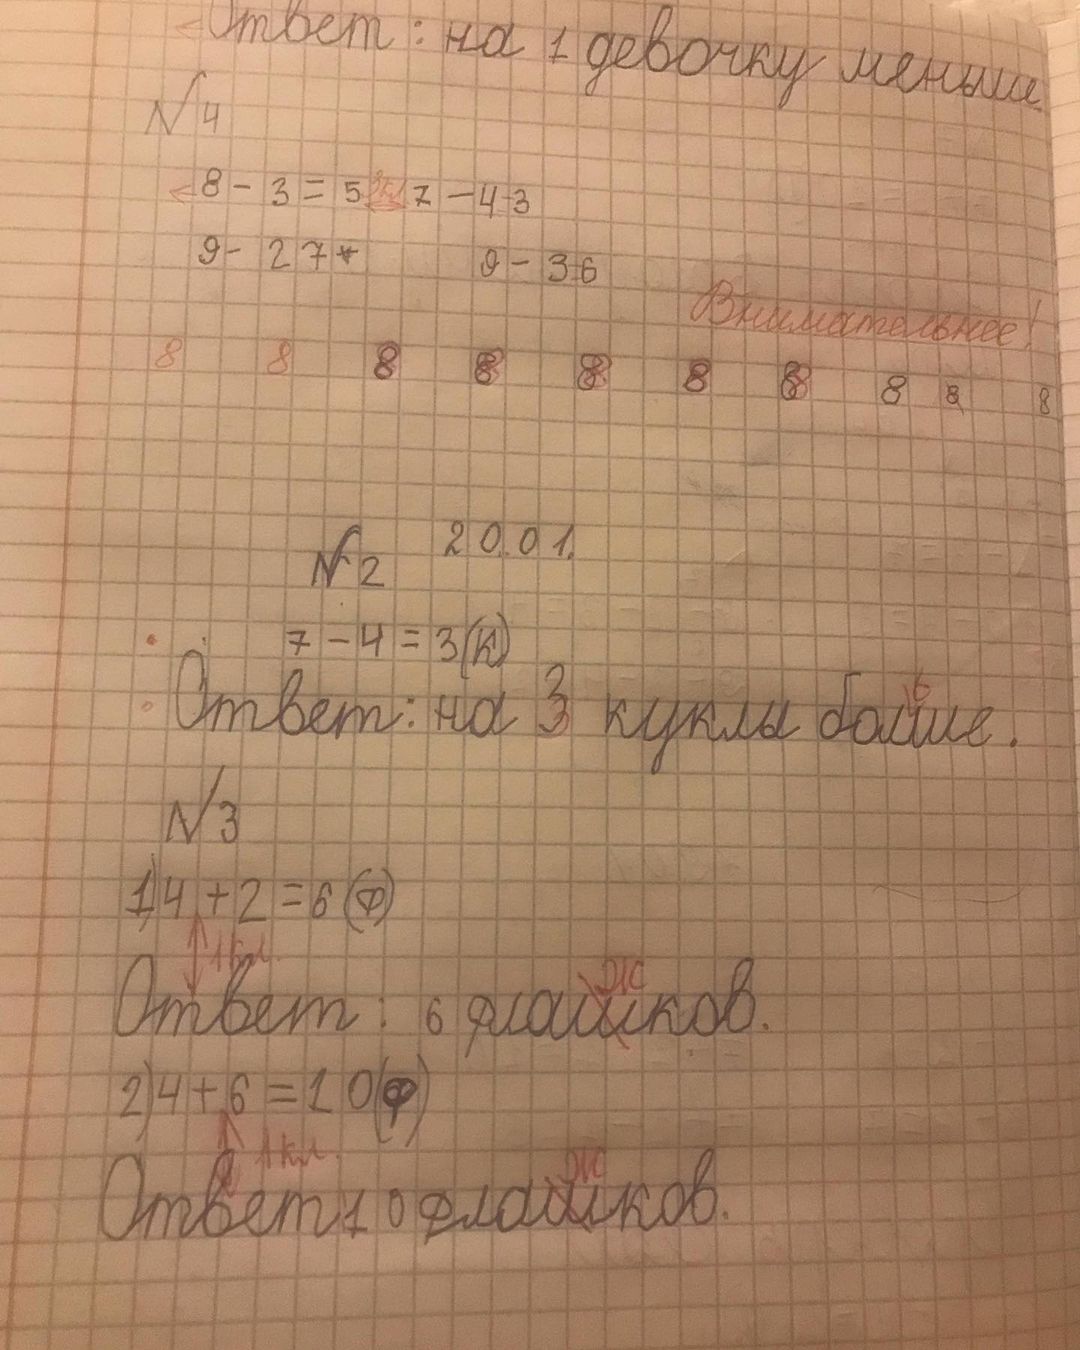 Ответ: на 1 девочку меньше
№ 4
8 - 3 = 5 2кл 7 - 4 3
9 - 2 7 9 - 3 6
Внимательнее!
8 8 8 8 8 8 8 8 8 8
20.01.
№ 2
7 - 4 = 3 (к)
Ответ: на 3 куклы болше.
ь
№ 3
1) 4 + 2 = 6 (ф)
1 кл.
ж
Ответ: 6 флашков.
2) 4 + 6 = 10 (ф)
1 кл.
ж
Ответ 10 флашков.